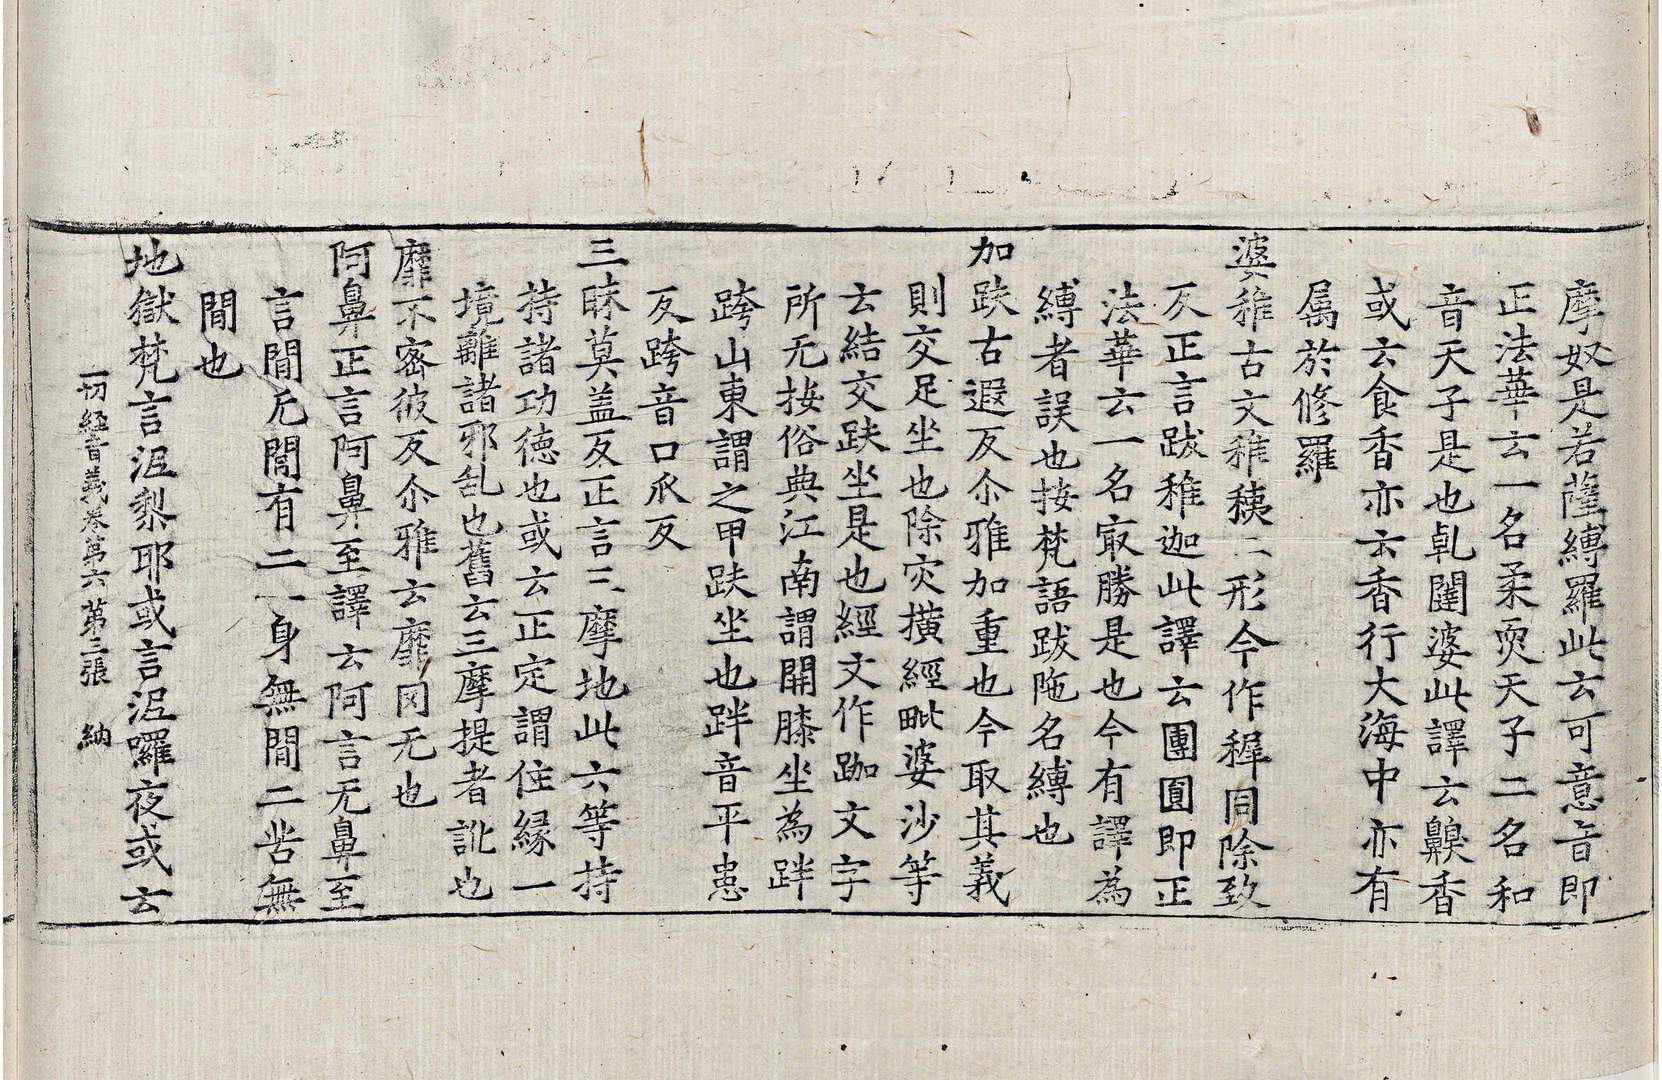 摩奴是若薩縛羅此云可意音即
正法華云一名柔耎天子二名和
音天子是也乹闥婆此譯云齅香
或云食香亦云香行大海中亦有
属於修羅
婆稚古文稚稺二形今作稺同除致
反正言跋稚迦此譯云團圓即正
法華云一名㝡勝是也今有譯為
縛者誤也按梵語跋陁名縛也
加趺古遐反尒雅加重也今取其義
則交足坐也除灾撗經毗婆沙等
云結交趺坐是也經文作跏文字
所无按俗典江南謂開膝坐為跘
跨山東謂之甲趺坐也跘音平患
反跨音口瓜反
三昧莫盖反正言三摩地此六等持
持諸功德也或云正定謂住緣一
境離諸邪乱也舊云三摩提者訛也
靡不密彼反尒雅云靡冈无也
阿鼻正言阿鼻至譯云阿言无鼻至
言間无間有二一身無間二苦無
間也
地獄梵言泥黎耶或言泥囉夜或云
一切經音義卷第六 第三張 納